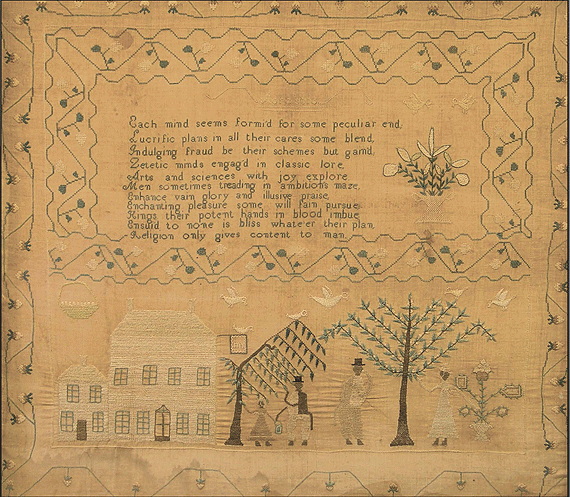 Each mind seems form'd for some peculiar end,
Lucrific plans in all their cares some blend,
Indulging fraud be their schemes but gain'd,
Zetetic minds engag'd in classic lore,
Arts and sciences with joy explore
Men sometimes treading in ambition's maze,
Enhance vain glory and illusive praise,
Enchanting pleasure some will fain pursue
Kings their potent hands in blood imbue
Ensu'd to none is bliss whate'er their plan,
Religion only gives content to man.